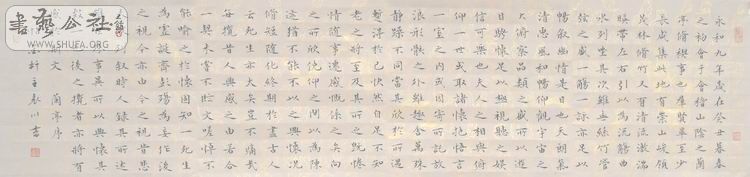 永和九年歲在癸丑暮春
之初會于會稽山陰之蘭
亭脩稧事也羣賢畢至少
長咸集此地有崇山峻領
茂林脩竹又有清流激湍
暎帶左右引以為流觴曲
水列坐其次雖無絲竹管
弦之盛一觴一詠亦足以
暢敘幽情是日也天朗氣
清惠風和暢仰觀宇宙之
大俯察品類之盛所以遊
目騁懷足以極視聽之娛
信可樂也夫人之相與俯
仰一世或取諸懷抱悟言
一室之內或因寄所託放
浪形骸之外雖趣舍萬殊
靜躁不同當其欣於所遇
暫得於己快然自足不知
老之將至及其所之既惓
情隨事遷感慨係之矣向
之所欣俛仰之閒以為陳
迹猶不能不以之興懷況
脩短隨化終期於盡古人
云死生亦大矣豈不痛哉
每攬昔人興感之由若合
一契未嘗不臨文嗟悼不
能喻之於懷固知一死生
為虛誕齊彭殤為妄作後
之視今亦由今之視昔悲
夫故列敘時人錄其所述
雖世殊事異所以興懷其
致一也後之攬者亦將有
感於斯文 蘭亭序
軒主 川書
書藝公社
WWW.SHUFA.ORG.CN